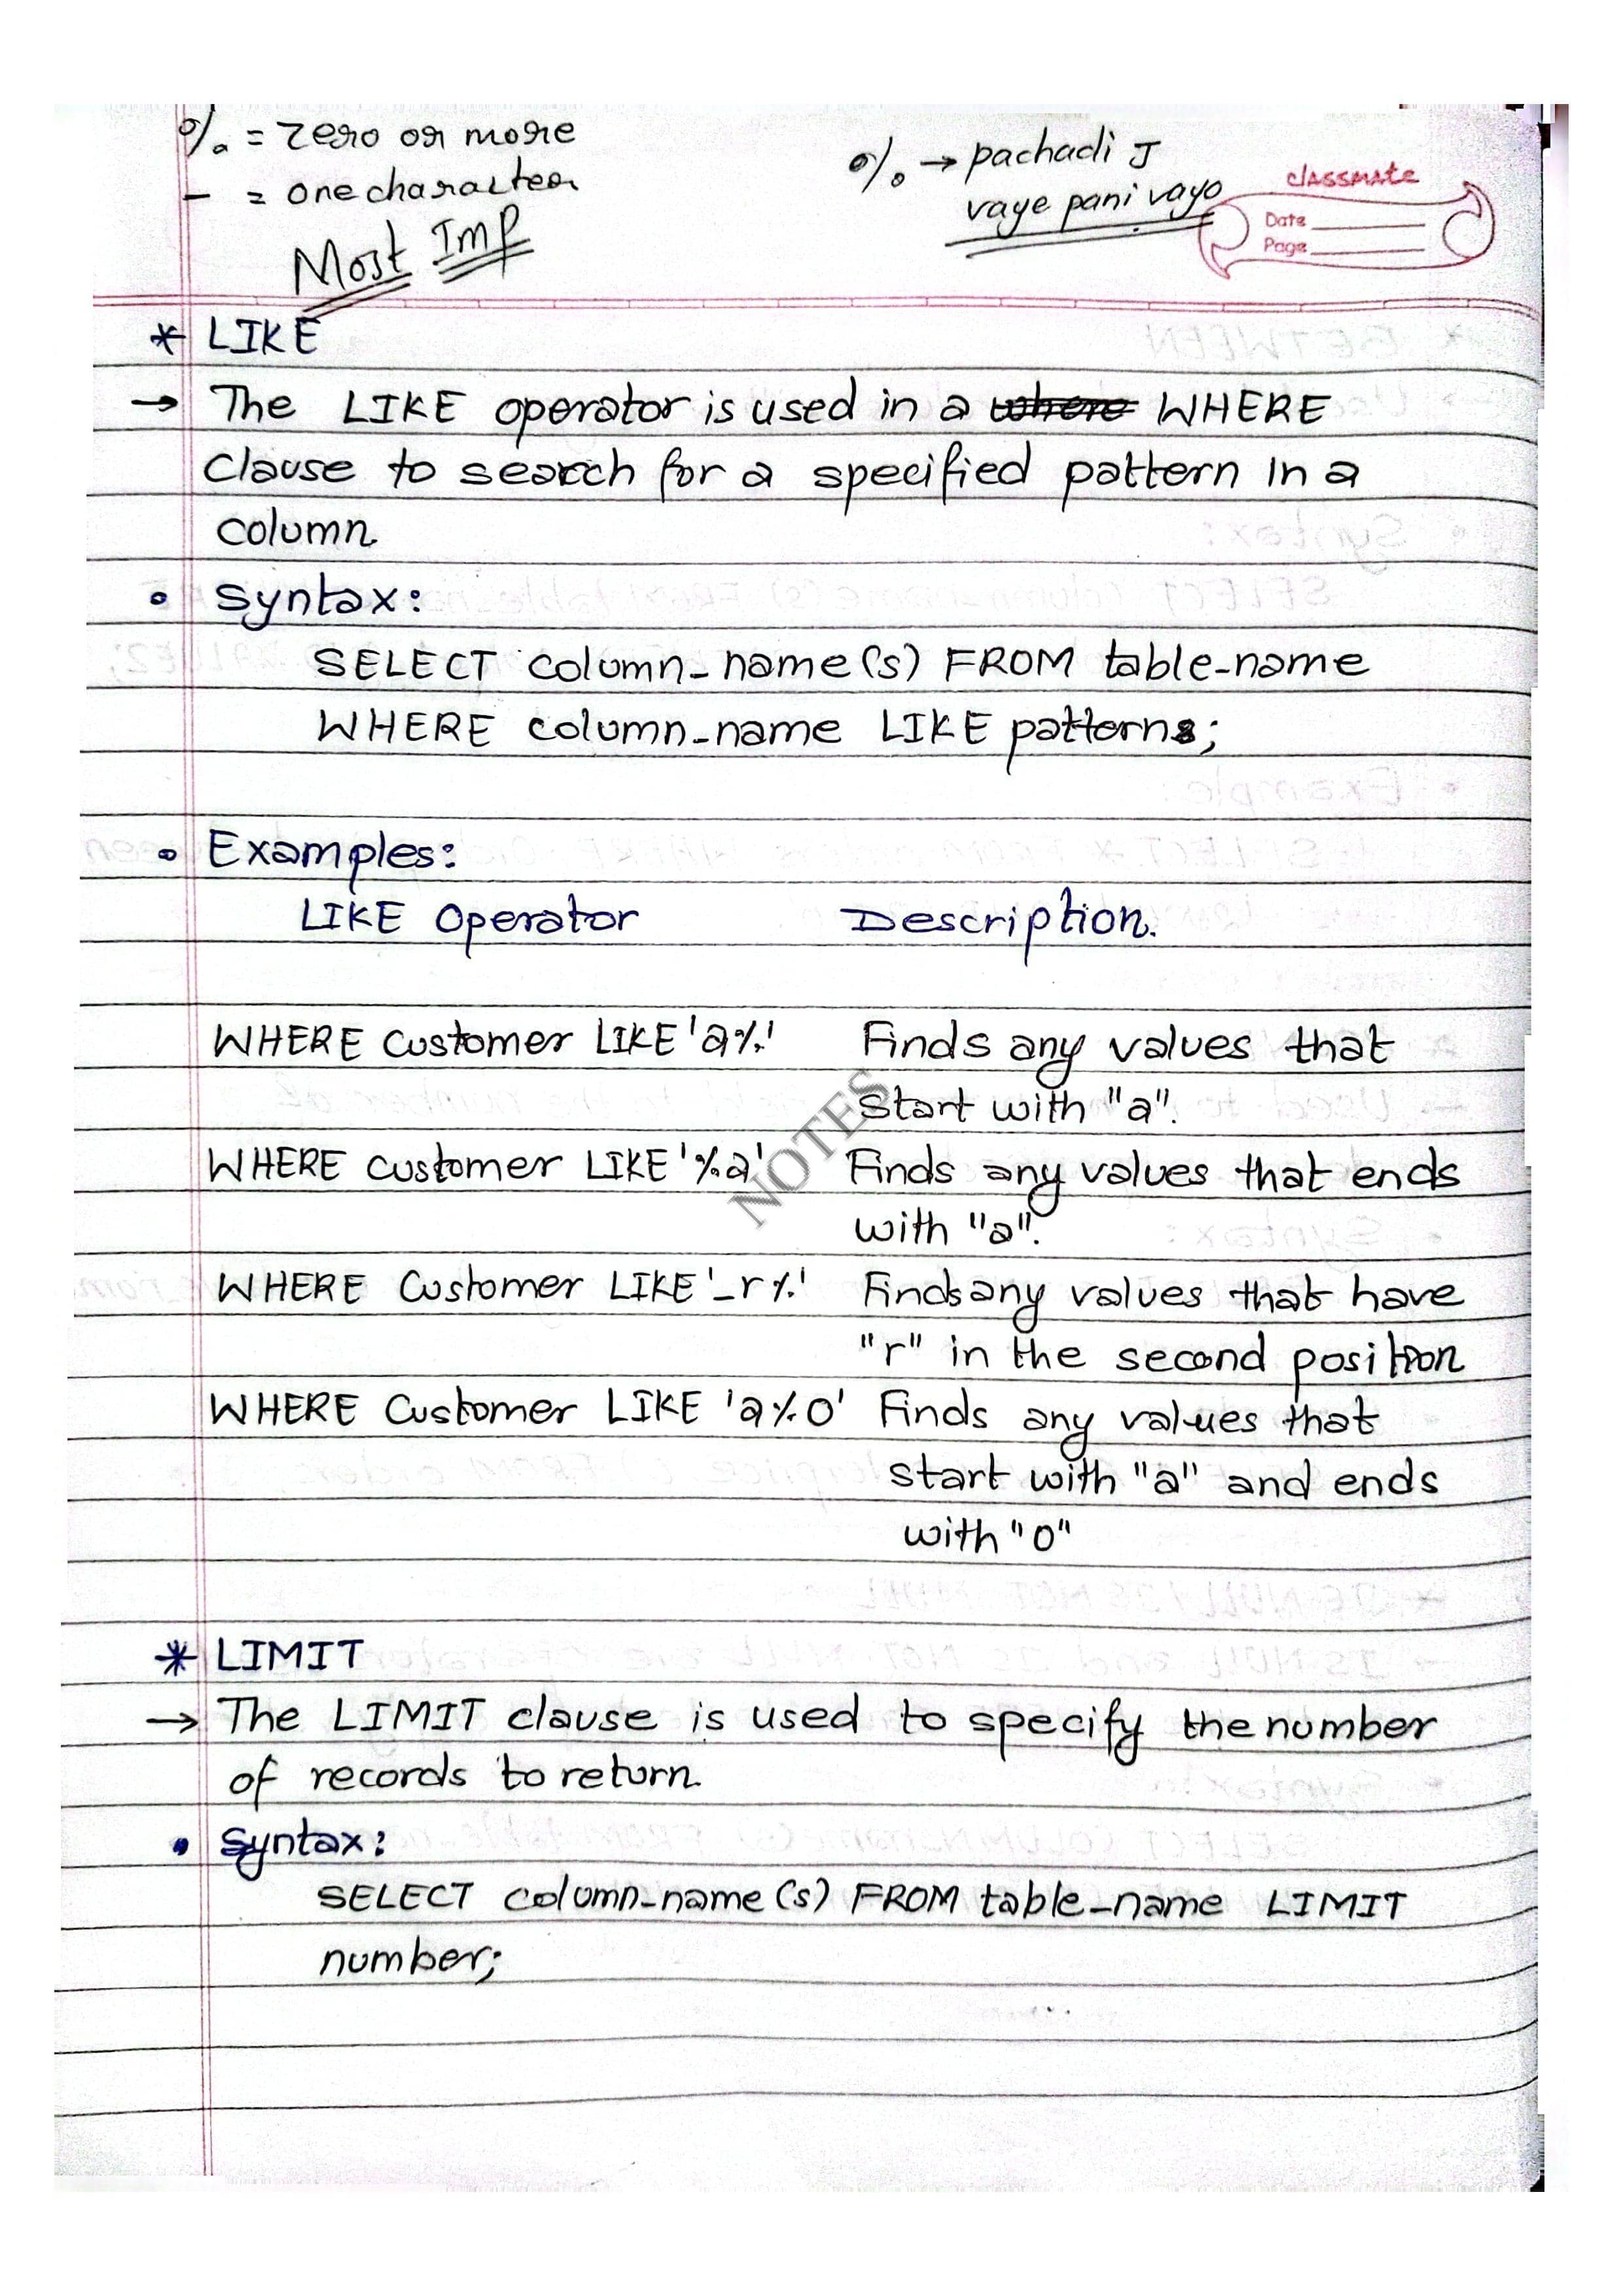 % = zero or more
_ = one character
Most Imp
% → pachadi J
vaye pani vayo
classmate
Date
Page
* LIKE
→ The LIKE operator is used in a where WHERE
clause to search for a specified pattern in a
column.
• Syntax:
SELECT column_name(s) FROM table_name
WHERE column_name LIKE pattern;
• Examples:
LIKE Operator Description.
WHERE customer LIKE 'a%' Finds any values that
start with "a".
WHERE customer LIKE '%a' Finds any values that ends
with "a".
WHERE customer LIKE '_r%' Finds any values that have
"r" in the second position
WHERE customer LIKE 'a%o' Finds any values that
start with "a" and ends
with "o"
NOTES
* LIMIT
→ The LIMIT clause is used to specify the number
of records to return.
• Syntax:
SELECT column_name(s) FROM table_name LIMIT
number;